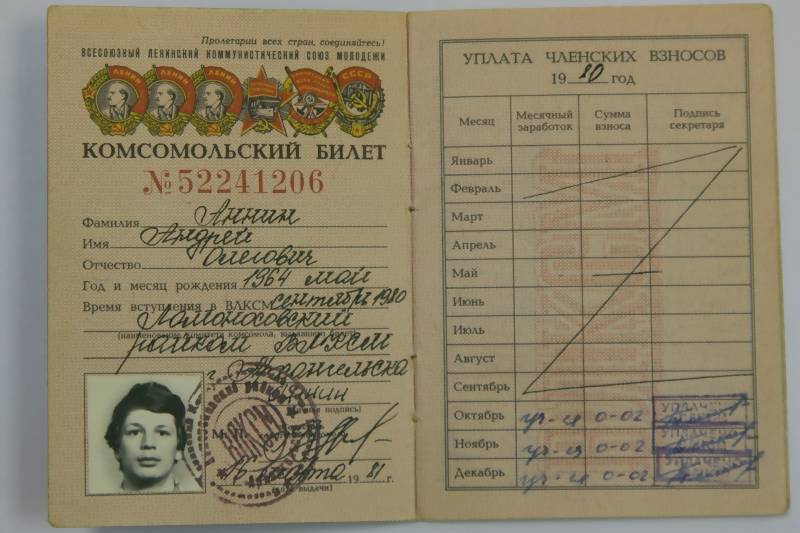 Пролетарии всех стран, соединяйтесь!
ВСЕСОЮЗНЫЙ ЛЕНИНСКИЙ КОММУНИСТИЧЕСКИЙ СОЮЗ МОЛОДЕЖИ
ЛЕНИН ЛЕНИН ЛЕНИН СССР
КОМСОМОЛЬСКИЙ БИЛЕТ
№ 52241206
Фамилия Аннин
Имя Андрей
Отчество Олегович
Год и месяц рождения 1964 май
Время вступления в ВЛКСМ сентябрь 1980
Ломоносовский
(наименование комитета комсомола, выдавшего билет)
райком ВЛКСМ
г. Архангельска
Аннин
(личная подпись)
М. П.
ВЛКСМ
16 марта 1981 г.
(дата выдачи)
УПЛАТА ЧЛЕНСКИХ ВЗНОСОВ
1980 год
Месяц Месячный заработок Сумма взноса Подпись секретаря
Январь
Февраль
Март
Апрель
Май
Июнь
Июль
Август
Сентябрь
Октябрь уч-ся 0-02 УПЛАЧЕНО
Ноябрь уч-ся 0-02 УПЛАЧЕНО
Декабрь уч-ся 0-02 УПЛАЧЕНО